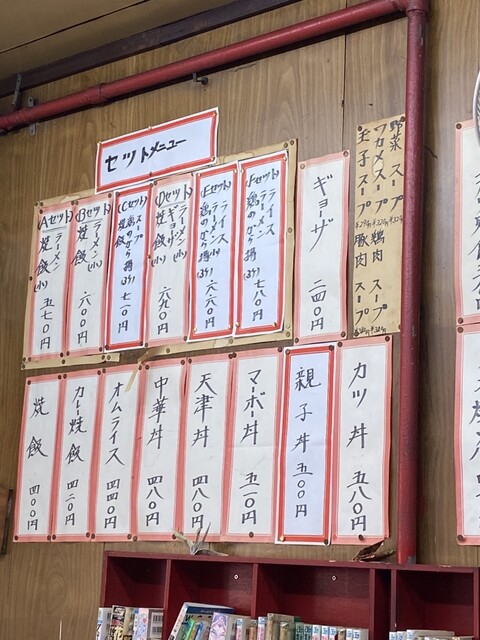 セットメニュー
野菜 スープ
ワカメスープ
玉子スープ
鶏肉 スープ
豚肉 スープ
ギョーザ
二四〇円
Fセット
ライス
鶏のから揚(5ヶ)
七八〇円
Eセット
ライス
スープ
鶏のから揚(3ヶ)
六六〇円
Dセット
ラーメン(小)
ギョーザ
焼飯(小)
六九〇円
Cセット
スープ
鶏のから揚(3ヶ)
焼飯
七二〇円
Bセット
ラーメン(小)
焼飯
六〇〇円
Aセット
ラーメン
焼飯(小)
五七〇円
カツ丼
五八〇円
親子丼
五〇〇円
マーボ丼
五二〇円
天津丼
四八〇円
中華丼
四八〇円
オムライス
四四〇円
カレー焼飯
四二〇円
焼飯
四〇〇円